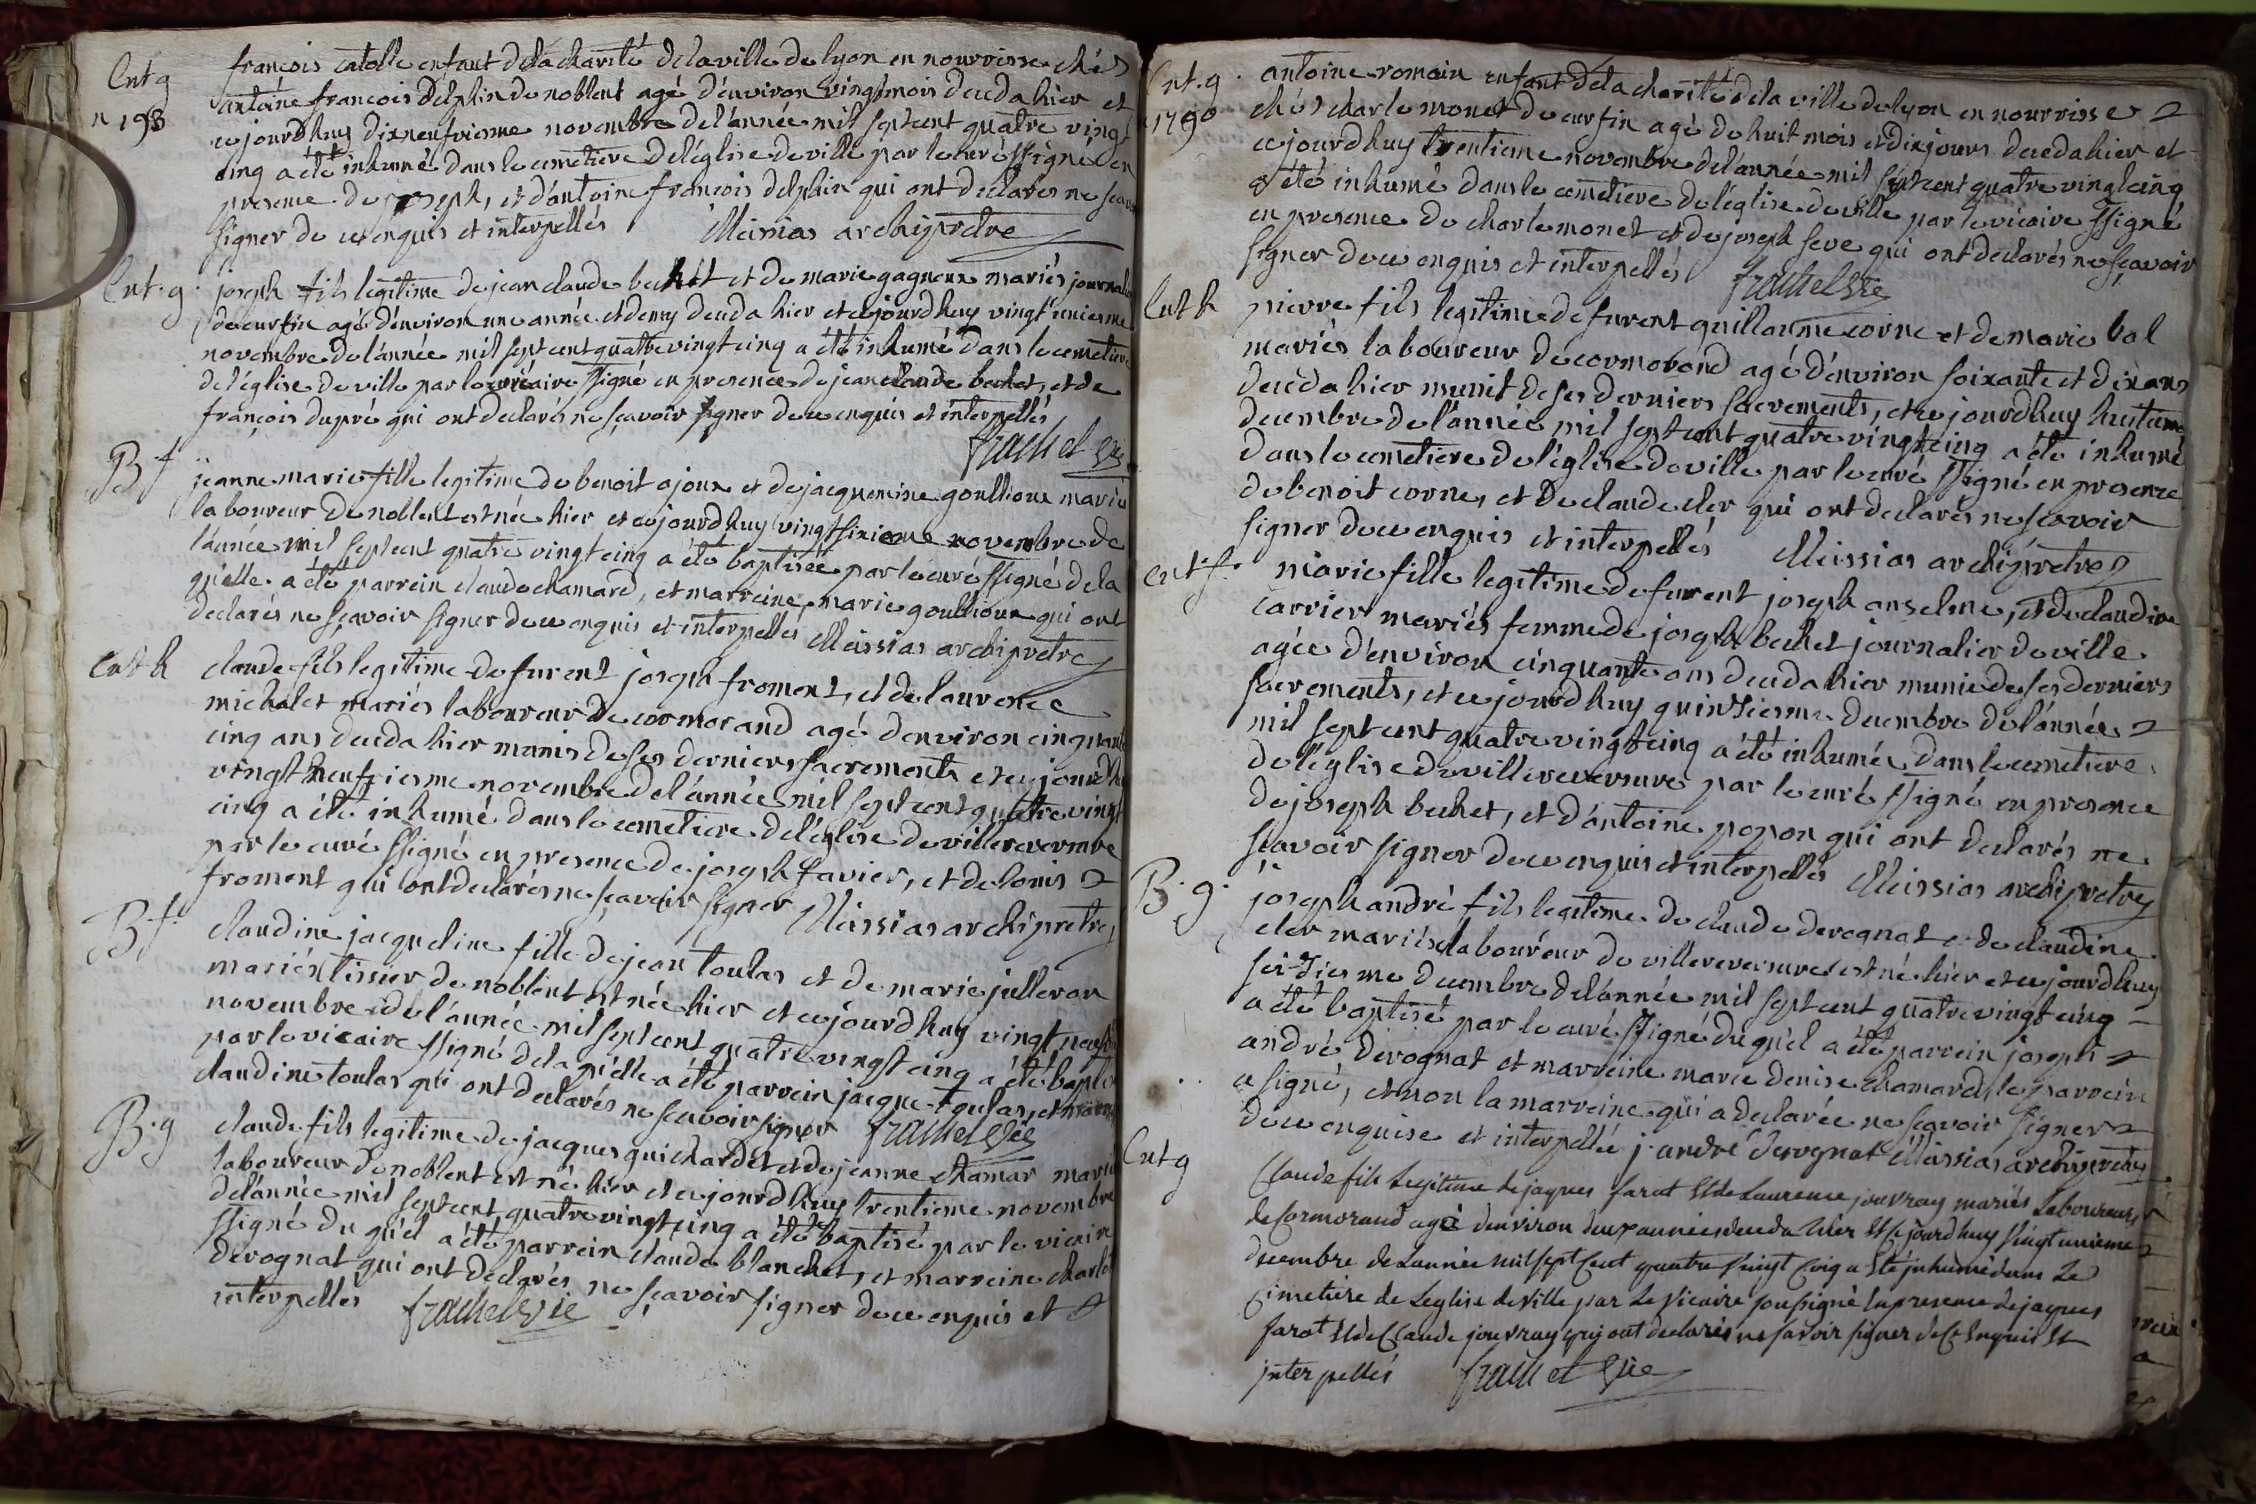 Ent g
n 193
françois catolle enfant de la charité de la ville de lyon en nourrisse chés
antoine françois délphin de noblent agé d'environ vingt mois deceda hier et
cejourdhuy dixneufviesme novembre de l'année mil septcent quatre vingt
cinq a été inhumé dans le cemetiere de l'église de ville par le curé ssigné en
presence de joseph, et d'antoine françois delphin qui ont declarés ne scavoir
signer de ce enquis et interpellés Messias archiprêtre
Ent. g.
joseph fils legitime de jean claude bechet et de marie gagneux mariés journalier
de curfin agé d'environ une année et demy deceda hier et cejourdhuy vingt uniesme
novembre de l'année mil septcent quatre vingt cinq a été inhumé dans le cemetiere
de l'église de ville par le vicaire ssigné en presence de jean claude bechet, et de
françois dupré qui ont declarés ne sçavoir signer de ce enquis et interpellés
frachet vie
B. f.
jeanne marie fille legitime de benoit ajoux et de jacquemine goullioux mariés
laboureur de noblent est née hier et cejourdhuy vingt sixieme novembre de
l'année mil septcent quatre vingt cinq a été baptisée par le curé ssigné de la
qu'elle a été parrein claude chamard, et marreine marie goullioux qui ont
declarés ne sçavoir signer de ce enquis et interpellés Messias archipretre
Ent h
claude fils legitime de furent joseph froment, et de laurence
michalet mariés laboureur de cormorand agé d'environ cinquante
cinq ans deceda hier munis de ses derniers sacrements et cejourdhuy
vingt neufviesme novembre de l'année mil septcent quatre vingt
cinq a été inhumé dans le cemetiere de l'église de villereversure
par le curé ssigné en presence de joseph favier, et de louis
froment qui ont declarés ne sçavoir signer Messias archipretre
B f.
claudine jacqueline fille de jean toulas et de marie julleron
mariés tissier de noblent est née hier et cejourdhuy vingt neuf
novembre de l'année mil septcent quatre vingt cinq a été baptisée
par le vicaire ssigné de la qu'elle a été parrein jacque toulas, et marreine
claudine toulas qui ont declarés ne sçavoir signer frachet vie
B. g
claude fils legitime de jacques guichardet et de jeanne chamar mariés
laboureur de noblent est né hier et cejourdhuy trentieme novembre
de l'année mil septcent quatre vingt cinq a été baptisé par le vicaire
ssigné du qu'el a été parrein claude blanchet, et marreine charlotte
derognat qui ont declarés ne sçavoir signer de ce enquis et
interpellés frachet vie
Ent. g.
1790
antoine romain enfant de la charité de la ville de lyon en nourrisse
chés charle monet de curfin agé de huit mois et dixjours deceda hier et
cejourdhuy trentieme novembre de l'année mil septcent quatre vingt cinq
a été inhumé dans le cemetiere de l'église de ville par le vicaire ssigné
en presence de charle monet et de joseph seve qui ont declarés ne sçavoir
signer de ce enquis et interpellés frachet vie
Ent h
pierre fils legitime de furent guillaume corne et de marie bal
mariés laboureur de cormorond agé d'environ soixante et dix ans
deceda hier munit de ses derniers sacrements, et cejourdhuy huitieme
decembre de l'année mil septcent quatre vingt cinq a été inhumé
dans le cemetiere de l'église de ville par le curé ssigné en presence
de benoit corne, et de claude cler qui ont declarés ne scavoir
signer de ce enquis et interpellés Messias archiprêtre
Ent f.
marie fille legitime de furent joseph anselme, et de claudine
carrier mariés femme de joseph bechet journalier de ville
agée d'environ cinquante ans deceda hier munie de ses derniers
sacrements, et cejourdhuy quinziesme decembre de l'année
mil septcent quatre vingt cinq a été inhumée dans le cemetiere
de l'église de villereversure par le curé ssigné en presence
de joseph bechet, et d'antoine popon qui ont declarés ne
scavoir signer de ce enquis et interpellés Messias archipretre
B. g.
joseph andré fils legitime de claude derognat et de claudine
cler mariés laboureur de villereversure est né hier et cejourdhuy
seiziesme decembre de l'année mil septcent quatre vingt cinq
a été baptisé par le curé ssigné du qu'el a été parrein joseph
andré derognat et marreine marie denise chamard, le parrein
a signé, et non la marreine qui a declarée ne sçavoir signer
de ce enquise et interpellée j. andré derognat Messias archiprêtre
Ent g
Claude fils Legitime de jaques farat et de Laurence jouvray mariés Laboureurs
de Cormorand agé d'environ deux années deceda hier et cejourdhuy vingt unieme
decembre de L'année mil sept Cent quatre vingt Cinq a été inhumé dans Le
Cimetiere de L'eglise de ville par Le vicaire soussigné en presence de jaques
farat et de Claude jouvray qui ont declarés ne savoir signer de Ce Enquis et
interpellés frachet vie